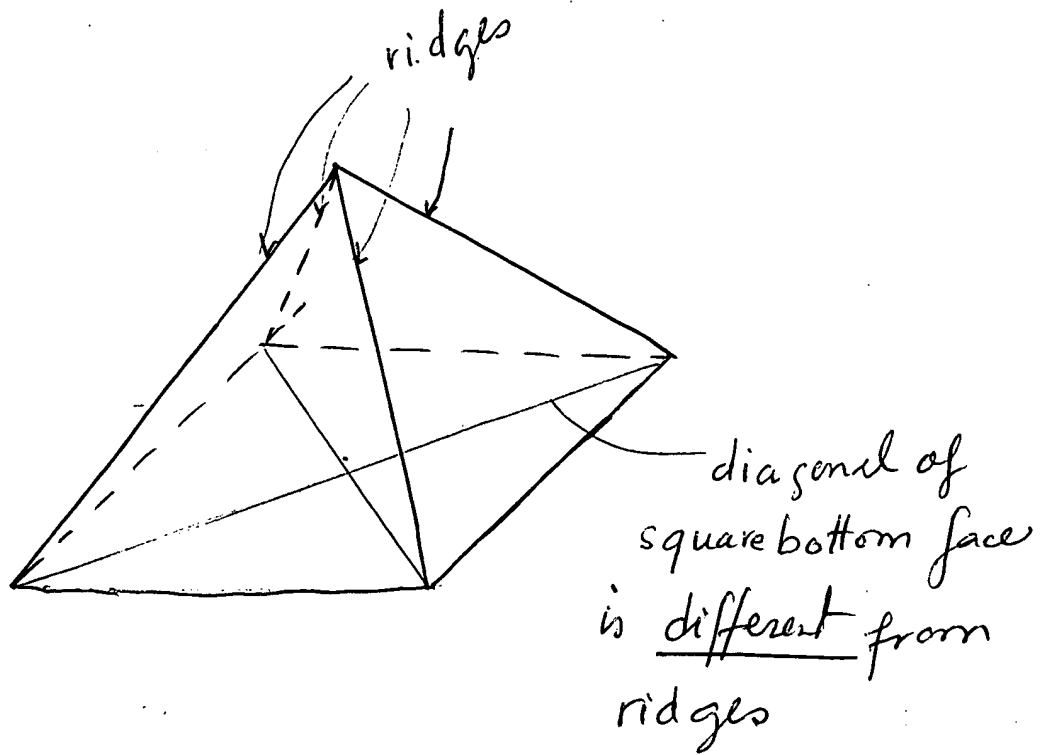 ridges
diagonal of
square bottom face
is different from
ridges